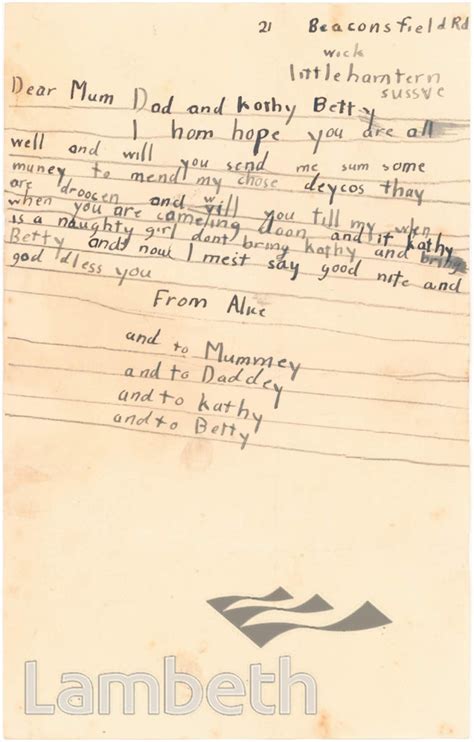 21 Beaconsfield Rd
wick
littlehamtern
sussve
Dear Mum Dad and Kathy Betty
I hom hope you are all
well and will you send me sum some
muney to mend my chose deycos thay
are droocen and will you till my wen
when you are comeling doon and if Kathy
is a naughty girl dont bring Kathy and bring
Betty and now I mest say good nite and
god dless you
From Alic
and to Mummey
and to Daddey
and to Kathy
and to Betty
Lambeth